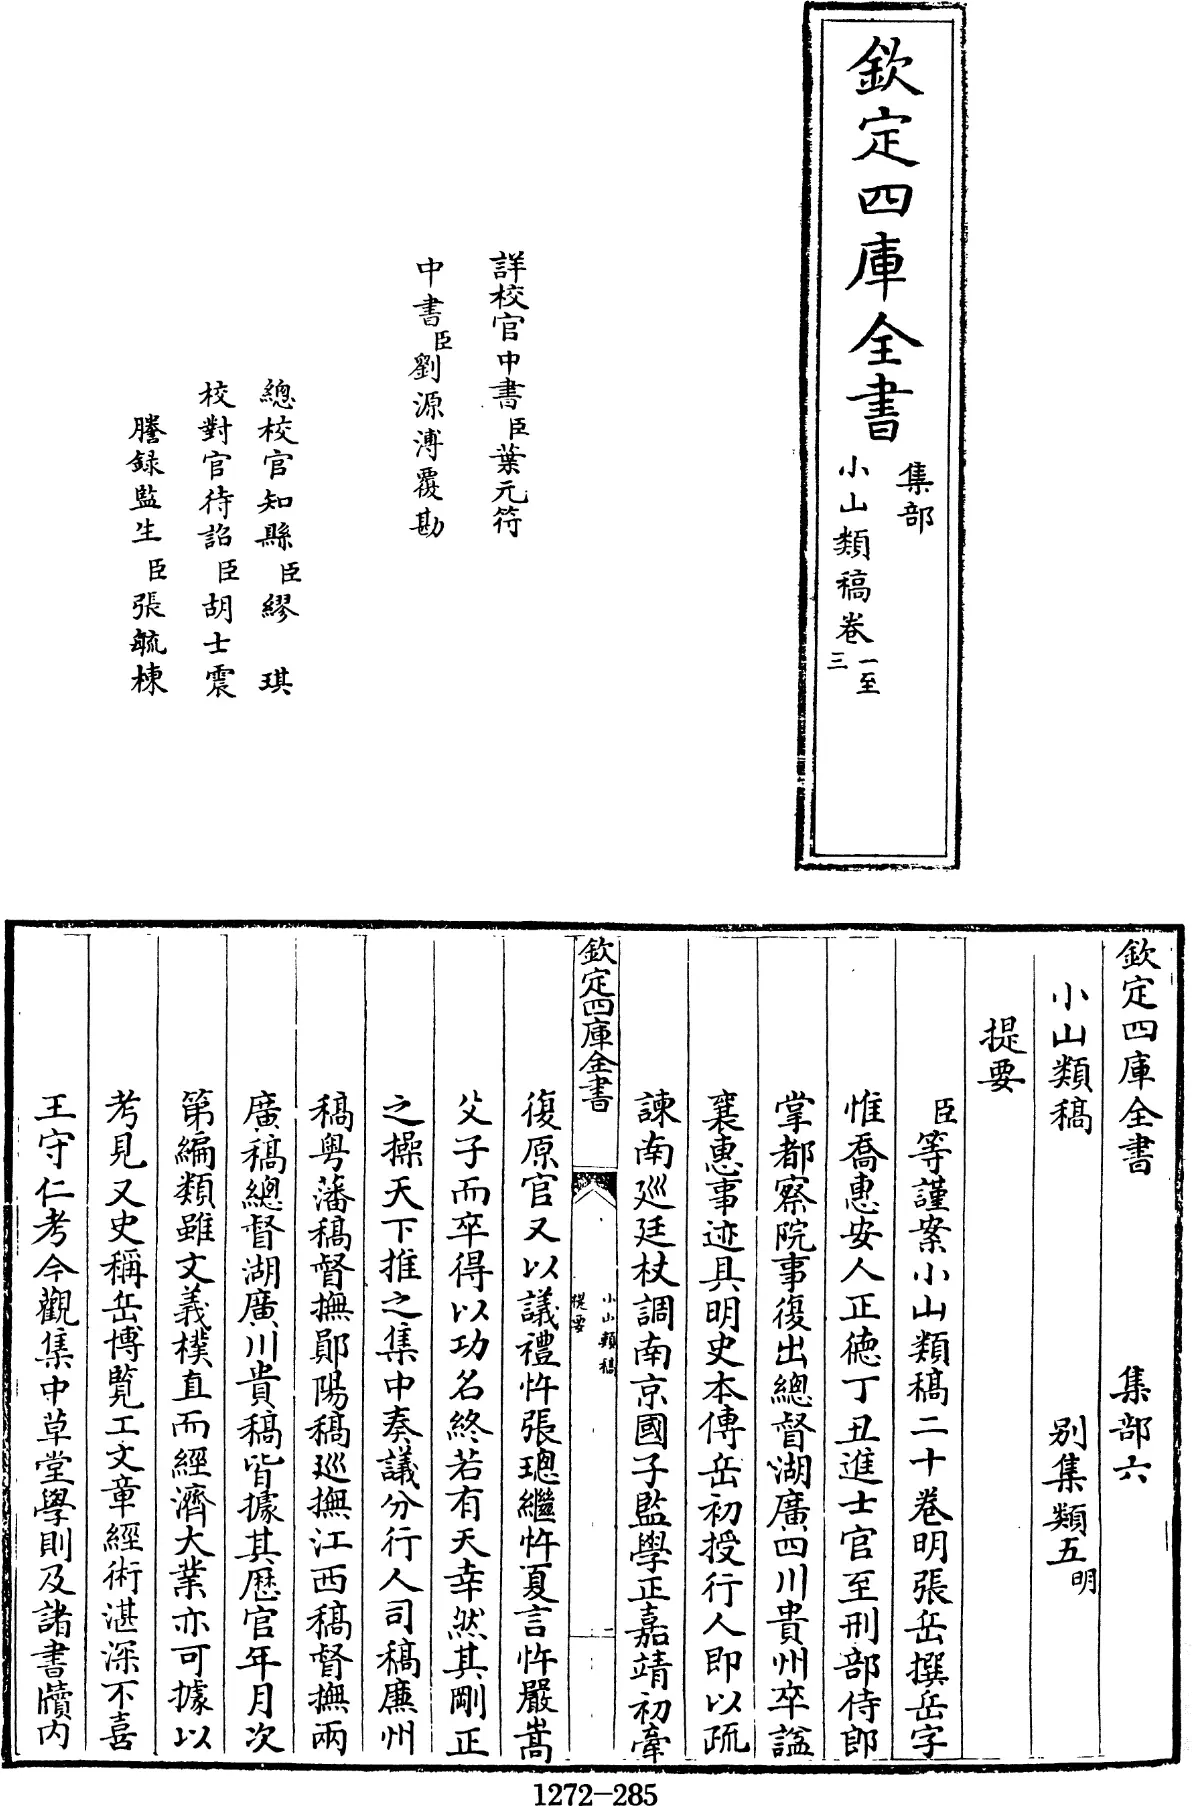 欽定四庫全書
集部
小山類稿卷一至三
詳校官中書臣葉元符
中書臣劉源溥覆勘
總校官知縣臣繆琪
校對官待詔臣胡士震
謄録監生臣張毓棟
欽定四庫全書 集部六
小山類稿 别集類五明
提要
臣等謹案小山類稿二十卷明張岳撰岳字
惟喬惠安人正徳丁丑進士官至刑部侍郎
掌都察院事復出總督湖廣四川貴州卒謚
襄惠事迹具明史本傳岳初授行人即以疏
諫南廵廷杖調南京國子監學正嘉靖初牽
欽定四庫全書
小山類稿
提要
一
復原官又以議禮忤張璁繼忤夏言忤嚴嵩
父子而卒得以功名終若有天幸然其剛正
之操天下推之集中奏議分行人司稿廉州
稿粤藩稿督撫鄖陽稿廵撫江西稿督撫兩
廣稿總督湖廣川貴稿皆據其歴官年月次
第編類雖文義樸直而經濟大業亦可據以
考見又史稱岳博覧工文章經術湛深不喜
王守仁考今觀集中草堂學則及諸書牘内
1272-285